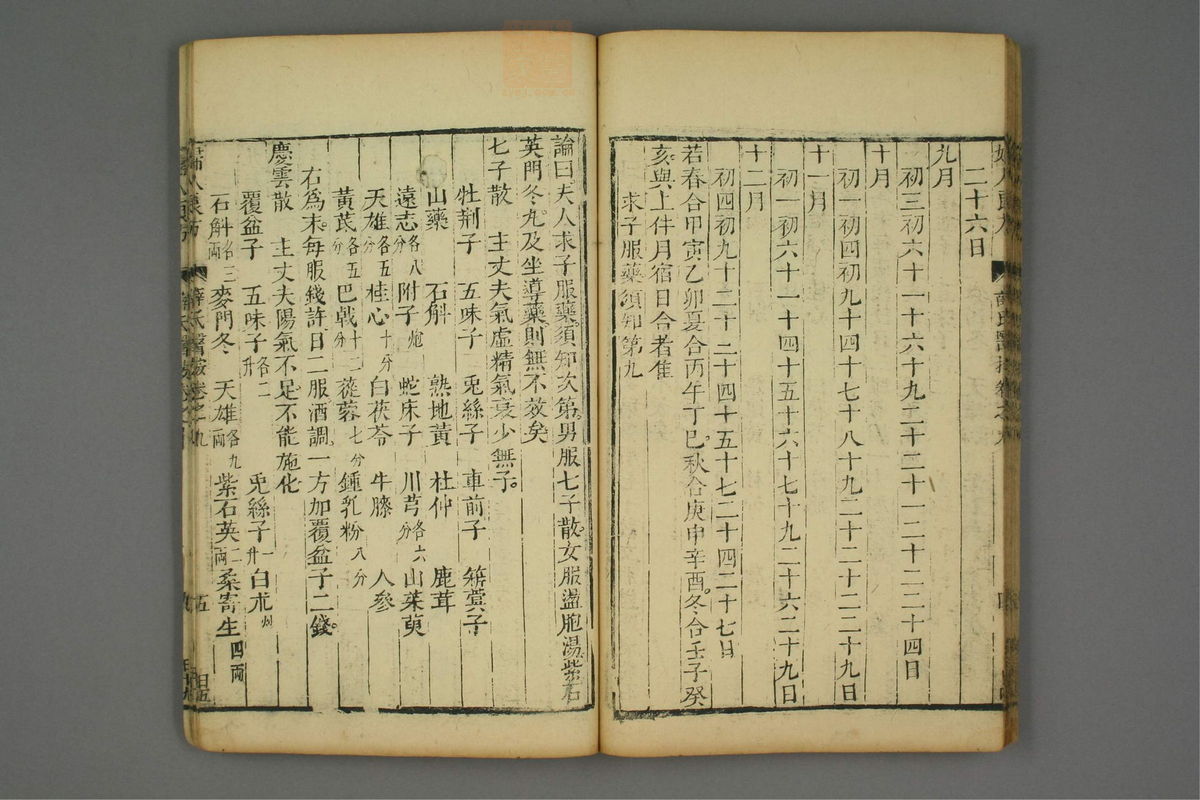 二十六日
九月
初三初六十一十六十九二十二十一二十二二十四日
十月
初一初四初九十四十七十八十九二十二十二二十九日
十一月
初一初六十一十四十五十六十七十九二十六二十九日
十二月
初四初九十二十二十四十五十七二十四二十七日
若春合甲寅乙卯夏合丙午丁巳秋合庚申辛酉冬合壬子癸
亥與上件月宿日合者隹
求子服藥須知第九
論曰夫人求子服藥須知次第男服七子散女服盪胞湯紫石
英門冬丸及坐導藥則無不效矣
七子散 主丈夫氣虛精氣衰少無子
牡荊子 五味子 兎絲子 車前子 菥蓂子
山藥 石斛 熟地黃 杜仲 鹿茸
遠志各八分 附子炮 蛇床子 川芎各六分 山茱萸
天雄各五分 桂心十分 白茯苓 牛膝 人參
黃芪各五分 巴戟十二分 蓯蓉七分 鍾乳粉八分
右爲末每服錢許日二服酒調一方加覆盆子二錢
慶雲散 主丈夫陽氣不足不能施化
覆盆子 五味子各二升 兎絲子一升 白朮炒
石斛各三兩 麥門冬 天雄各九兩 紫石英二兩 桑寄生四兩
薛氏醫按卷之九